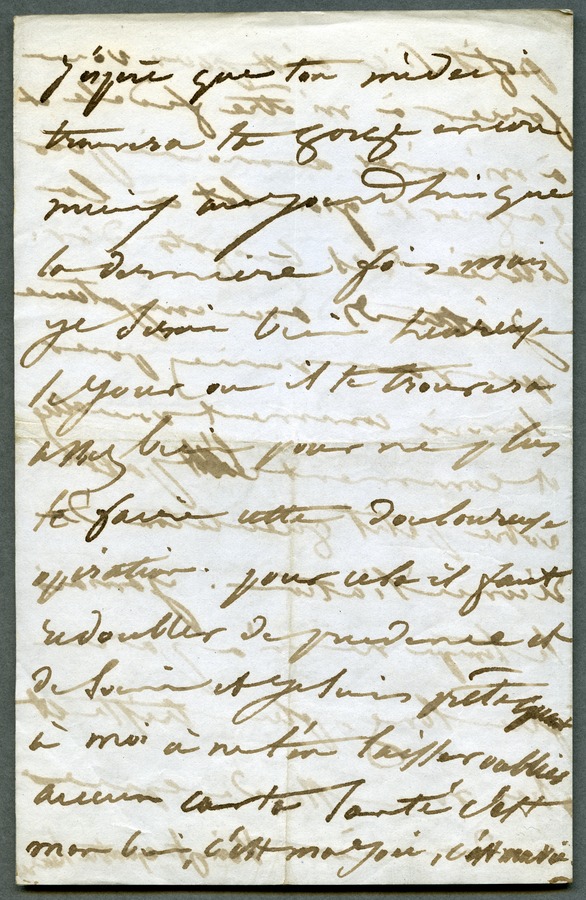 J'espère que ton médeci
trouvera ta gorge encore
mieux aujourd'huis que
la dernière fois mais
je serai bien heureuse
le jour ou il te trouvera
assez bien pour ne plus
te faire cette douloureuse
opération. pour cela il faut
redoubler de prudence et
de soins et je suis prête quant
à moi à ne t'en laisser oublier
aucun car ta santé c'est
mon bien, c'est ma joie, c'est ma vie